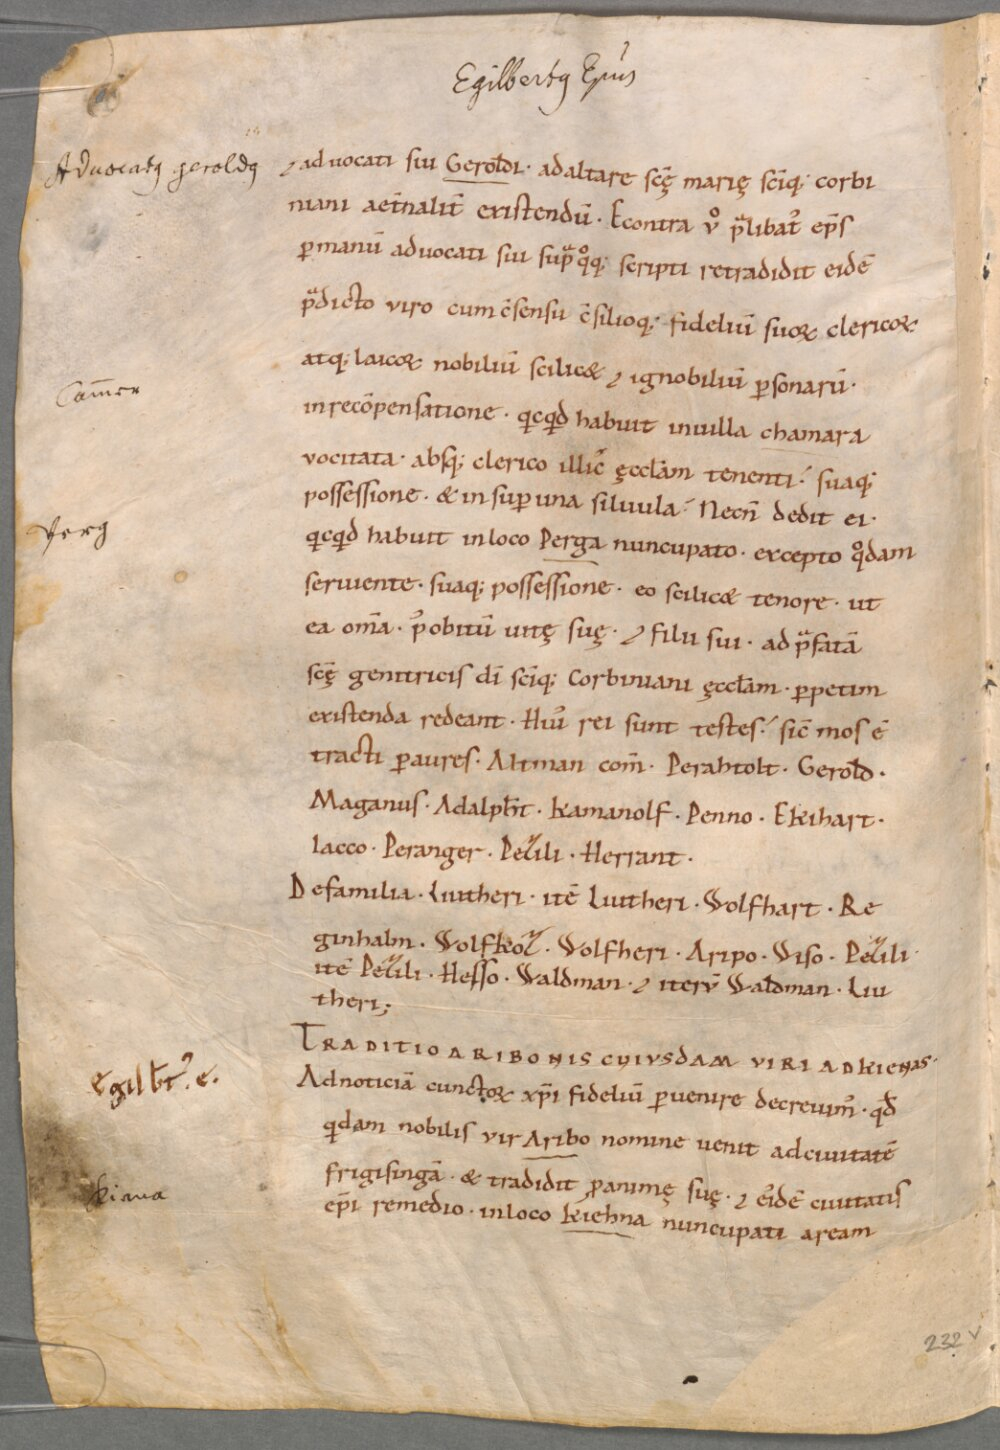 Egilbertꝰ Ep̃us
Advocatꝰ geroldꝰ
⁊ advocati sui Geroldi · ad altare scę̄ marię sc̄iq; corbi
niani aet̄nalit̄ existendū · Econtra v̊ p̄libatꝰ ep̄s
ꝑ manū advocati sui sup̄ q̊q; scripti retradidit eidē
p̄dicto viro cum c̄sensu c̄silioq; fideliū suoꝝ clericoꝝ
atq; laicoꝝ nobiliū scilic& ⁊ ignobiliū ꝑsonarū ·
Cam̄er
in recōpensatione · qicqid habuit in uilla chamara
vocitata · absq; clerico illic̄ ęccłam tenenti · suaq;
possessione · & insuꝑ una siluula · Necn̄ dedit ei ·
Perg
qicqid habuit in loco Perga nuncupato · excepto q̊dam
seruiente · suaq; possessione · eo scilic& tenore · ut
ea om̄a · pꝰ obitū uitę suę · ⁊ filii sui · ad p̄fatā
scę̄ genitricis dī sc̄iq; Corbiniani ęccłam · ꝑpetim
existenda redeant · Huiꝰ rei sunt testes · sic̄ mos ē
tracti ꝑ aures · Altman com̄ · Perahtolt · Gerold ·
Maganus · Adalpħt · Kamanolf · Penno · Ekihart ·
Iacco · Peranger · Pezili · Herrant ·
De familia · Liutheri · itē Liutheri · Wolfhart · Re
ginhalm · Wolfkoz · Wolfheri · Aripo · Wiso · Pezili ·
itē Pezili · Hesso · Waldman · ⁊ iterū Waldman · Liu
theri;
TRADITIO ARIBONIS CUIUSDAM VIRI AD KIENAS ·
egilbt̄ꝰ · e ·
Ad noticiā cunctoꝝ xp̄i fideliū ꝑuenire decreuimꝰ · qđ
qidam nobilis vir Aribo nomine uenit ad ciuitatē
frigisingā · & tradidit ꝓ animę suę · ⁊ eiꝰdē ciuitatis
kiana
ep̄i remedio · in loco Kiehna nuncupati aream
232 v